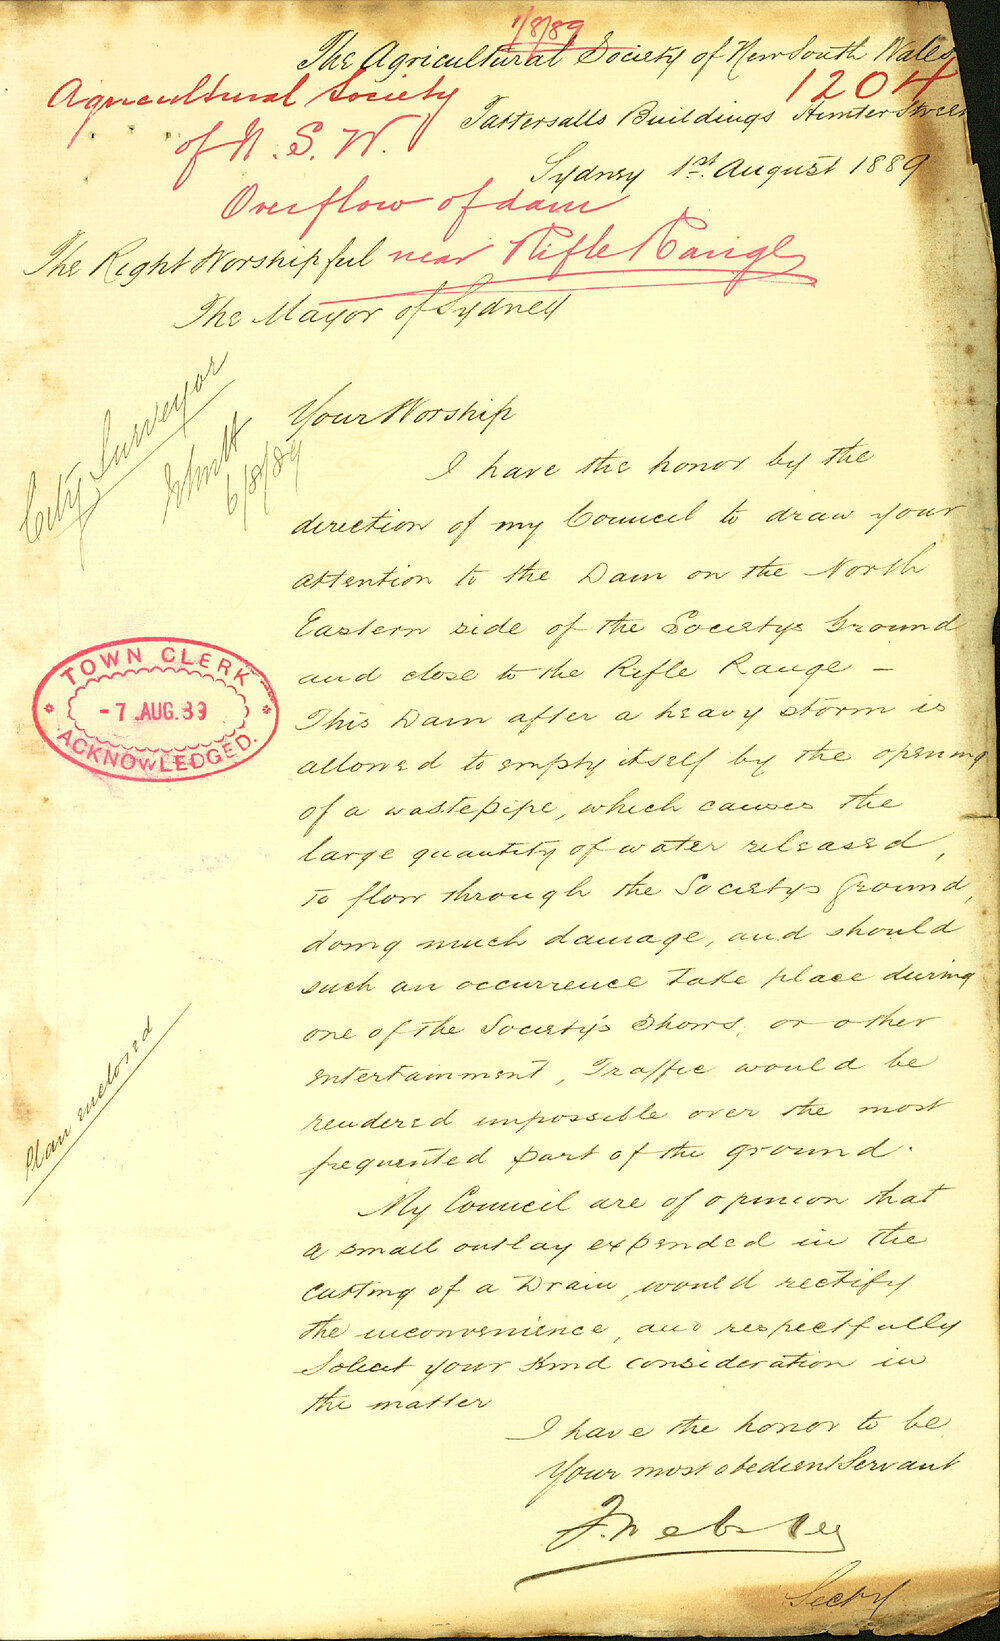 1/8/89
The Agricultural Society of New South Wales
1204
Agricultural Society
Tattersalls Buildings Hunter Street
of N. S. W.
Sydney 1st. August 1889
Overflow of dam
The Right Worshipful near Rifle Range
The Mayor of Sydney
City Surveyor
6/8/89
Your Worship
I have the honor by the
direction of my Council to draw your
attention to the Dam on the North
Eastern side of the Societys Ground
and close to the Rifle Range –
This Dam after a heavy storm is
allowed to empty itself by the opening
of a wastepipe, which causes the
large quantity of water released,
to flow through the Societys Ground,
doing much damage, and should
such an occurrence take place during
one of the Society's Shows, or other
entertainment, Traffic would be
rendered impossible over the most
frequented part of the ground.
My Council are of opinion that
a small outlay expended in the
cutting of a Drain, would rectify
the inconvenience, and respectfully
Solicit your kind consideration in
the matter
I have the honor to be
Your most obedient Servant
F. Webster
Secty
TOWN CLERK
-7. AUG. 89
ACKNOWLEDGED.
Plan enclosed